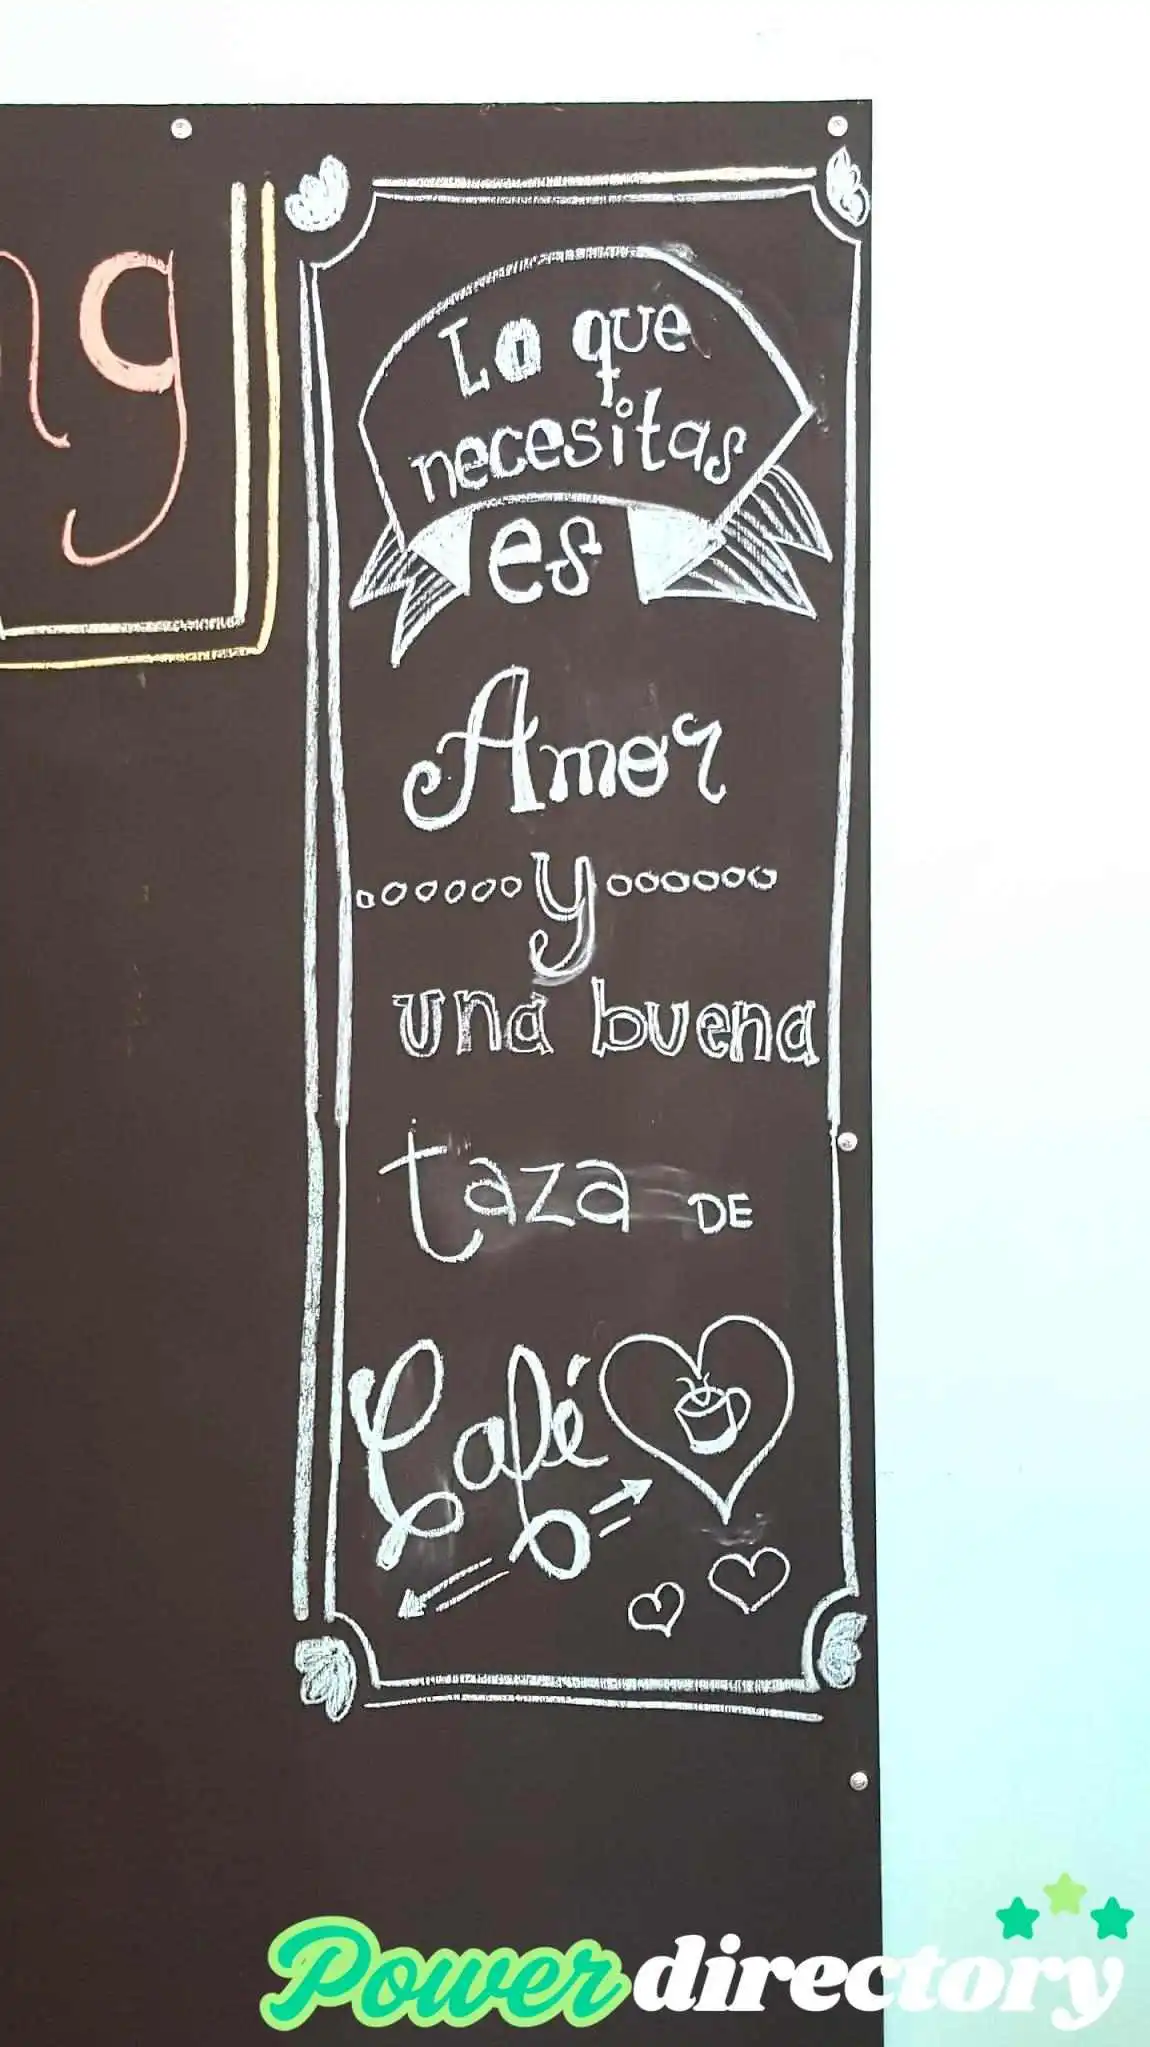 ng
Lo que
necesitas
es
Amor
y
una buena
taza DE
Café
Powerdirectory